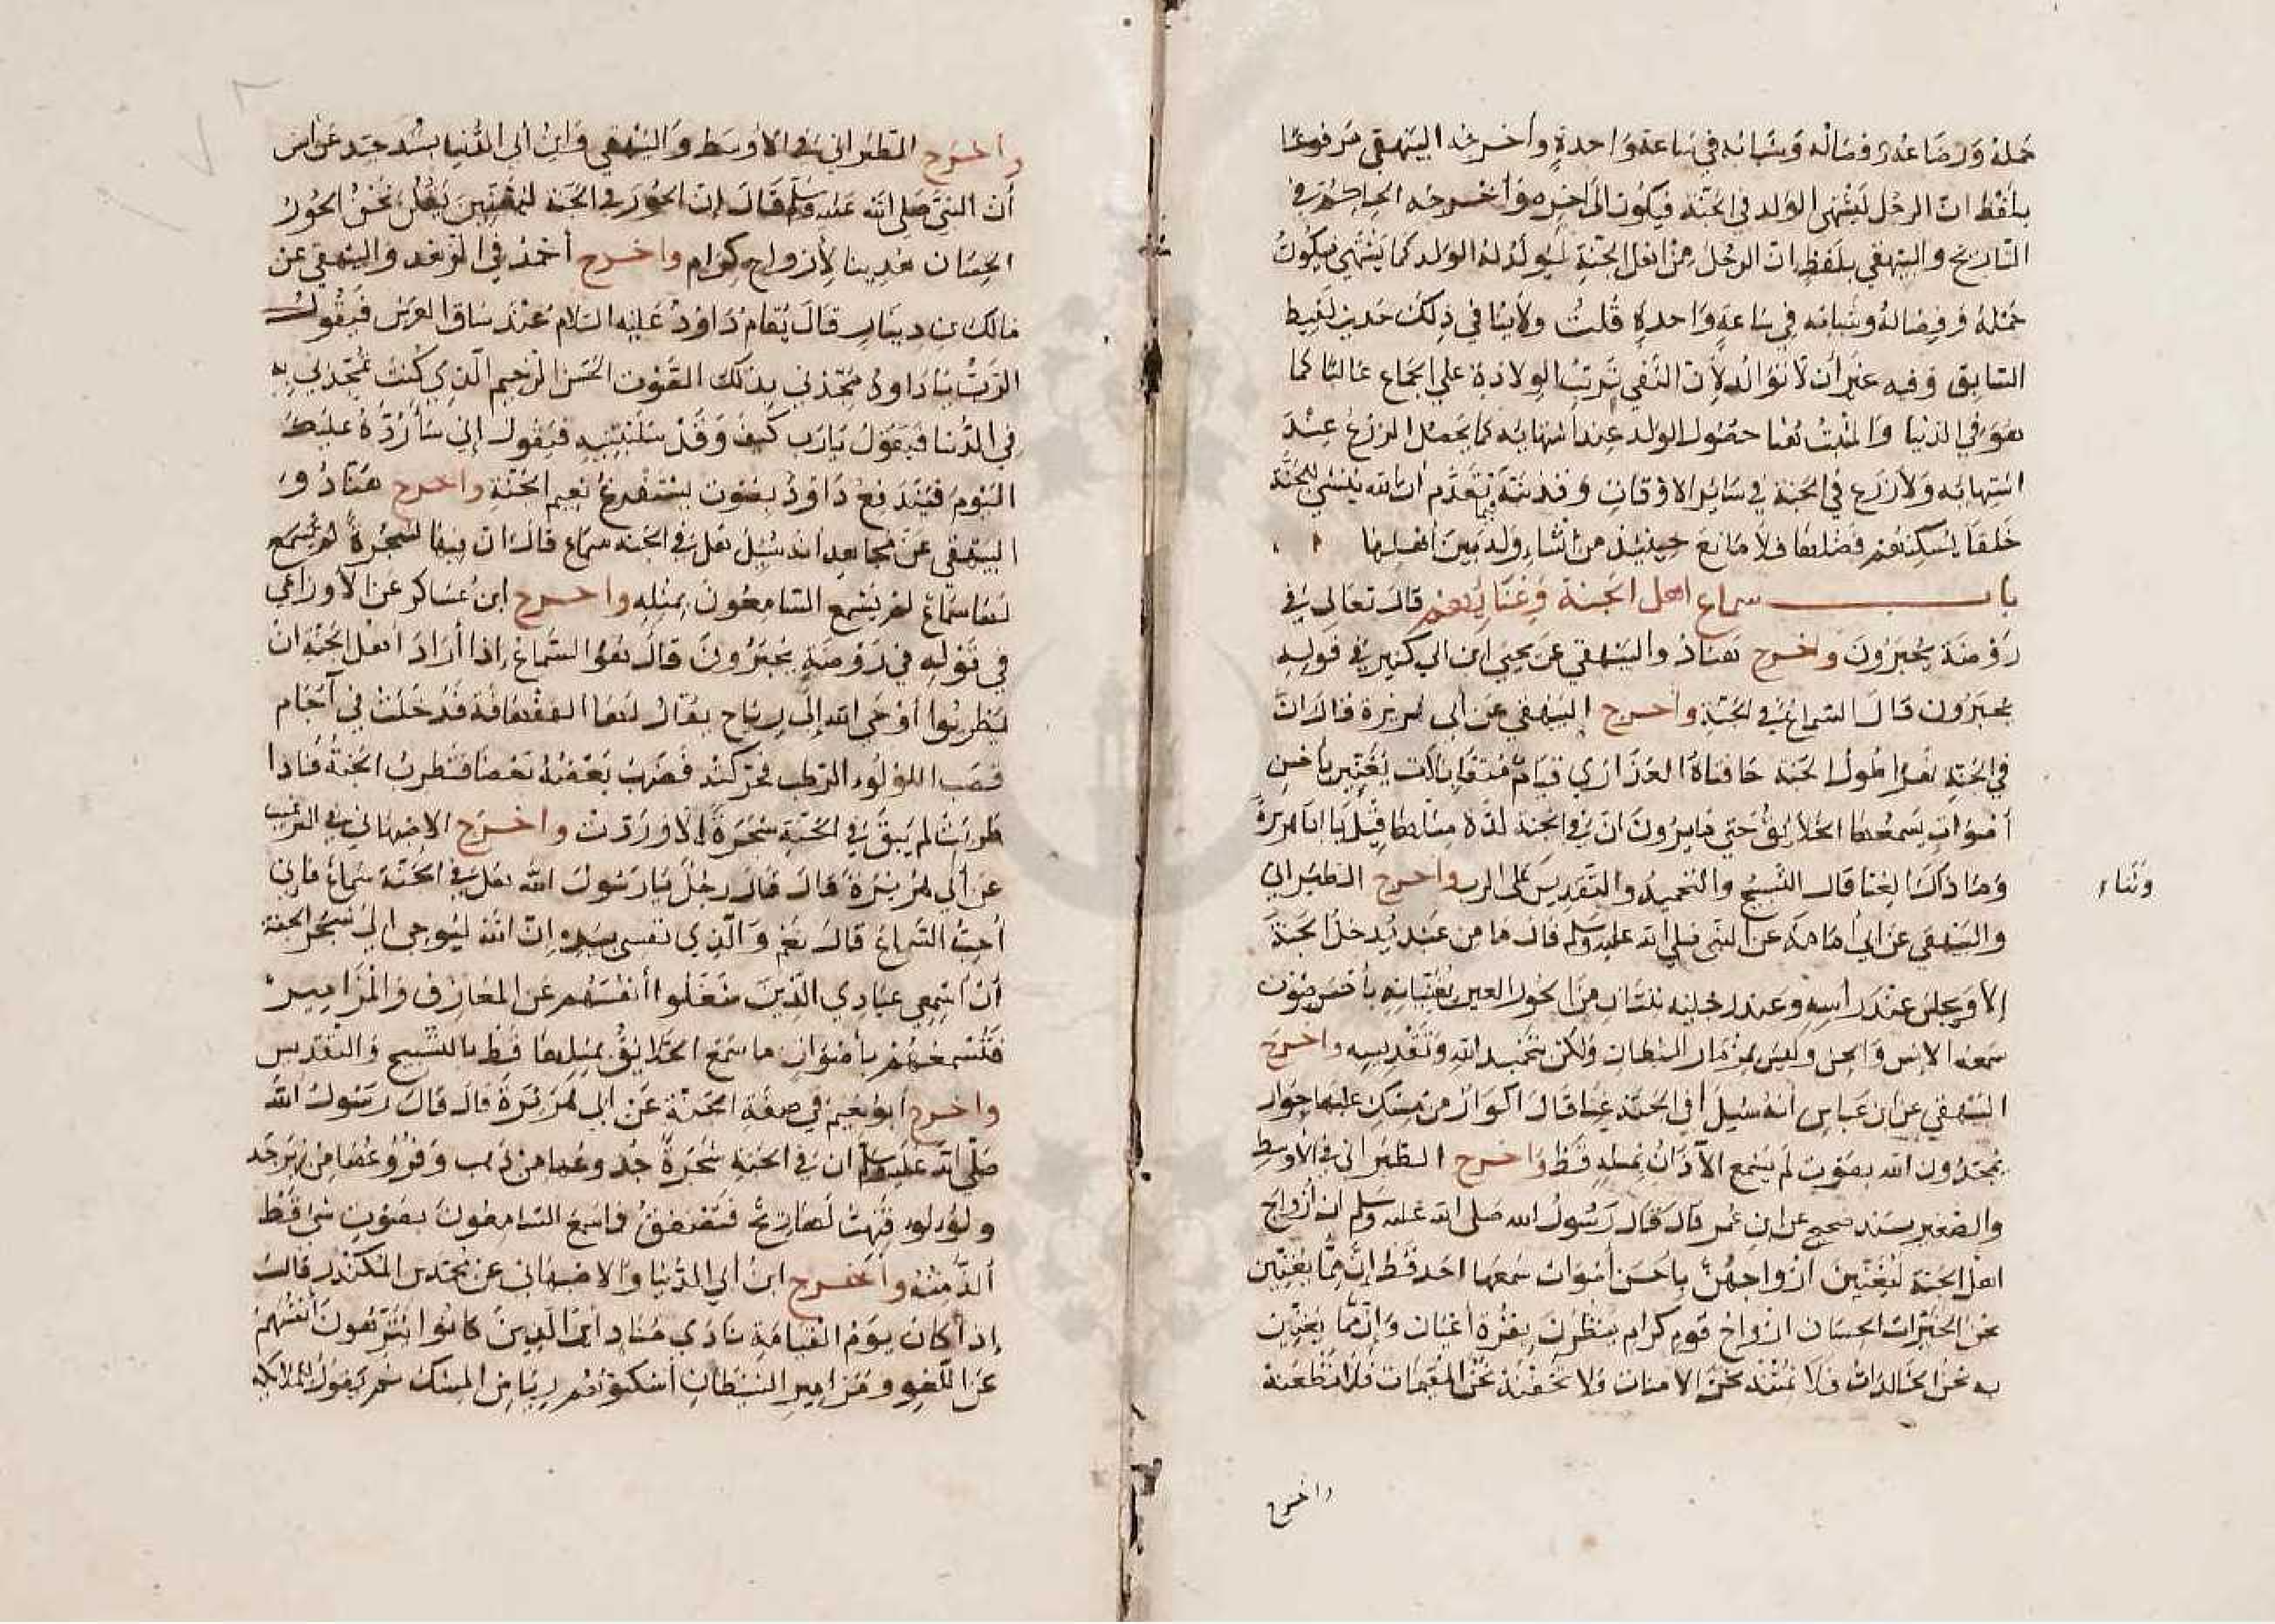 حمله ورضاعه وفصاله وشبابه في ساعة واحدة وأخرجه البيهقي مرفوعًا
بلفظ ان الرجل ليشتهي الولد في الجنة فيكون الى اخره وأخرجه الحاكم في
التاريخ والبيهقي بلفظ ان الرجل من اهل الجنة ليولد له الولد كما يشتهي فيكون
حمله وفصاله وشبابه في ساعة واحدة قلت ولا ينافي ذلك حديث لقيط
السابق وفيه غير أن لا توالد لأن النفي ترتب الولادة على الجماع غالبا كما
هو في الدنيا والمثبت هنا حصول الولد عند اشتهائه كما يحصل الزرع عند
اشتهائه ولا زرع في الجنة في سائر الاوقات وقد تقدم ان الله ينشئ للجنة
خلقا يسكنهم فضلها فلا مانع حينئذ من انشاء ولد بين أهلها
باب سماع اهل الجنة وغنائهم قال تعالى في
روضة يحبرون واخرج هناد والبيهقي عن يحيى ابن ابي كثير في قوله
يحبرون قال السماع في الجنة واخرج البيهقي عن أبي هريرة قال ان
في الجنة نهرا طول الجنة حافتاه العذارى قيام متقابلات يغنين بأحسن
أصوات يسمعها الخلائق حتى ما يرون ان في الجنة لذة مثلها قيل يا ابا هريرة
وما ذاك الغنا قال التسبيح والتحميد والتقديس على الرب واخرج الطبراني
وثناء
والبيهقي عن أبي أمامة عن النبي صلى الله عليه وسلم قال ما من عبد يدخل الجنة
الا ويجلس عند رأسه وعند رجليه ثنتان من الحور العين يغنيانه بأحسن صوت
سمعه الانس والجن وليس بمزمار الشيطان ولكن بتحميد الله وتقديسه واخرج
البيهقي عن ابن عباس أنه سئل أفي الجنة غنا قال اكوار من مسك عليها جوار
يمجدون الله بصوت لم يسمع الآذان بمثله قط واخرج الطبراني في الأوسط
والصغير بسند صحيح عن ابن عمر قال قال رسول الله صلى الله عليه وسلم ان أزواج
اهل الجنة ليغنين ازواجهن بأحسن أصوات سمعها احد قط إن مما يغنين
نحن الخيرات الحسان ازواج قوم كرام ينظرن بقرة أعيان وإن مما يغنين
به نحن الخالدات فلا نمتنه نحن الآمنات فلا نخفنه نحن المقيمات فلا نظعنه
واخرج
واخرج الطبراني في الاوسط والبيهقي وابن أبي الدنيا بسند جيد عن انس
أن النبي صلى الله عليه وسلم قال إن الحور في الجنة ليغنين يقلن نحن الحور
الحسان هدينا لأزواج كرام واخرج أحمد في الزهد والبيهقي عن
مالك بن دينار قال يقام داود عليه السلام عند ساق العرش فيقول
الرب يا داود مجدني بذلك الصوت الحسن الرخيم الذي كنت تمجدني به
في الدنيا فيقول يا رب كيف وقد سلبتنيه فيقول إني سأرده عليك
اليوم فيندفع داود بصوت يستفرغ نعيم الجنة واخرج هناد و
البيهقي عن مجاهد انه سئل هل في الجنة سماع قال ان فيها لشجرة لم يسمع
لها سماع لم يسمع السامعون بمثله واخرج ابن عساكر عن الأوزاعي
في قوله في روضة يحبرون قال هو السماع إذا أراد اهل الجنة ان
يطربوا أوحى الله إلى رياح يقال لها الهفهافة فدخلت في آجام
قصب اللؤلؤ الرطب فحركته فضرب بعضه بعضا فتطرب الجنة فاذا
طربت لم يبق في الجنة شجرة إلا وردت واخرج الاصبهاني في الترغيب
عن أبي هريرة قال قال رجل يا رسول الله هل في الجنة سماع فاني
أحب السماع قال نعم والذي نفسي بيده ان الله ليوحي الى شجر الجنة
أن اسمعي عبادي الذين شغلوا أنفسهم عن المعازف والمزامير
فتسمعهم بأصوات ما سمع الخلائق بمثلها قط بالتسبيح والتقديس
واخرج أبو نعيم في صفة الجنة عن ابي هريرة قال قال رسول الله
صلى الله عليه وسلم ان في الجنة شجرة جذوعها من ذهب وفروعها من زبرجد
ولؤلؤ فتهب لها ريح فتصفق فما سمع السامعون بصوت شئ قط
ألذ منه واخرج ابن أبي الدنيا والاصبهاني عن محمد بن المنكدر قال
إذا كان يوم القيامة ينادي مناد أين الذين كانوا ينزهون أنفسهم
عن اللهو ومزامير الشيطان أسكنوهم رياض المسك ثم يقول للملائكة